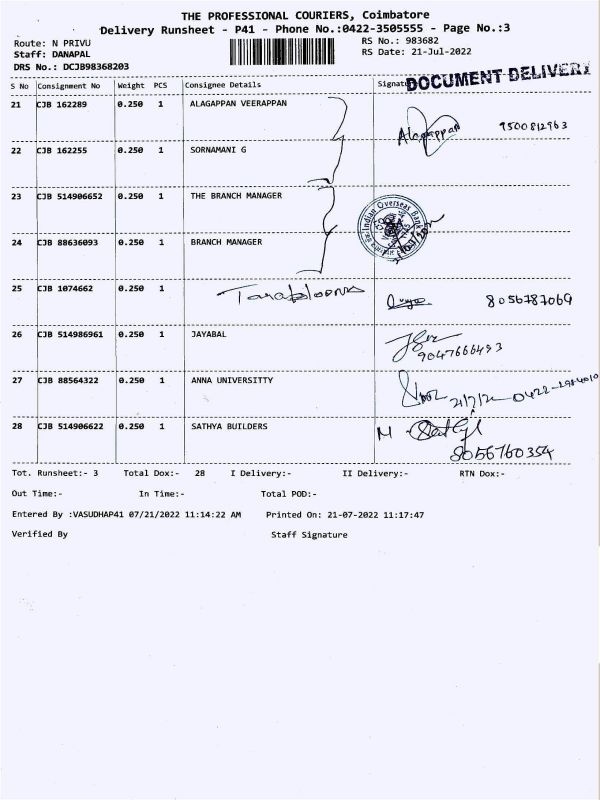 THE PROFESSIONAL COURIERS, Coimbatore
Delivery Runsheet - P41 - Phone No.:0422-3505555 - Page No.:3
Route: N PRIVU RS No.: 983682
Staff: DANAPAL RS Date: 21-Jul-2022
DRS No.: DCJB98368203
DOCUMENT DELIVERY
S No Consignment No Weight PCS Consignee Details Signat
21 CJB 162289 0.250 1 ALAGAPPAN VEERAPPAN
Alagappan 9500812963
22 CJB 162255 0.250 1 SORNAMANI G
23 CJB 514906652 0.250 1 THE BRANCH MANAGER
Indian Overseas Bank
24 CJB 88636093 0.250 1 BRANCH MANAGER
25 CJB 1074662 0.250 1 8056787069
26 CJB 514986961 0.250 1 JAYABAL
9047666493
27 CJB 88564322 0.250 1 ANNA UNIVERSITTY
21/7/22
28 CJB 514906622 0.250 1 SATHYA BUILDERS
8056760354
Tot. Runsheet:- 3 Total Dox:- 28 I Delivery:- II Delivery:- RTN Dox:-
Out Time:- In Time:- Total POD:-
Entered By :VASUDHAP41 07/21/2022 11:14:22 AM Printed On: 21-07-2022 11:17:47
Verified By Staff Signature